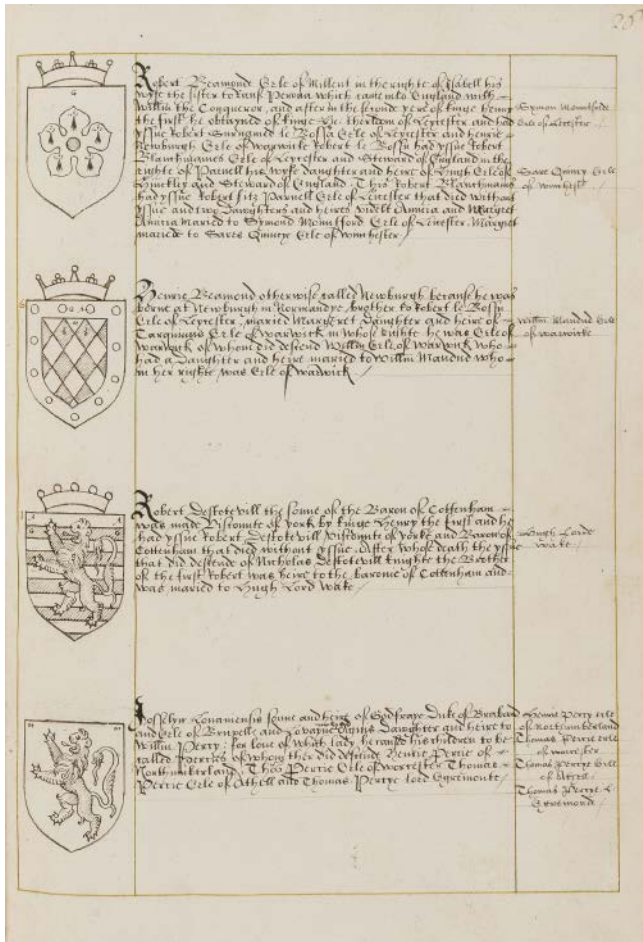 Robert Beamond Erle of Millent in the righte of Isabell his
wyfe the sister to
which came into England with
Willm the Conqueror, and after in the seconde yere of kinge Henry
the first he obtayned of kinge the Erldom of Leycester and had
yssue Robert surnamed le Bossu Erle of Leycester and Henrie
Newburgh Erle of warwicke Robert le Bossu had yssue Robert
Blanchmaines Erle of Leycester and Steward of England in the
righte of Parnell his wyfe daughter and heire of Hugh Erle of
Hinckley and Steward of England. This Robert Blanchmaines
had yssue Robert fitz Parnell Erle of Leicester that died without
yssue and two Daughters and heires videlt Amicia and Margret
Amicia maried to Symond Mountford Erle of Leicester. Margret
maried to Erle of winchester /
Symon Mountforde
Erle of Leicester /
Quincy Erle
of winchester /
Henrie Beamond otherwise called Newburgh because he was
borne at Newburgh in Normandye, brother to Robert le Bossu
Erle of Leycester, maried Margeret Daughter and heire of
Erle of warwick in whose righte he was Erle of
warwick, of whom did descend Willm Erle of warwick who
had a Daughter and heire maried to Willm Maudud who
in her righte was Erle of warwick /
Willm Maudud Erle
of warwicke
Robert Destotevill the sonne of the Baron of Cottenham
was made Viscounte of york by kinge Henry the first and he
had yssue Robert Destotevill Viscounte of yorke and Baron of
Cottenham that died without yssue. After whose death the yssue
that did descende of Nicholas Destotevill knighte the Brother
of the first Robert was heire to the baronie of Cottenham and
was maried to Hugh Lord Wake /
Hugh Lorde
wake /
Josselyn Lovaniensis sonne and heire of Godfraye Duke of Braband
and Erle of Bruxelle and Lovayne Daughter and heire to
Willm Percy: for love of which lady he caused his children to be
called Percies of whom ther did descend Henrie Percie of
Northumberland, Thos Percie Erle of worcester Thomas
Percie Erle of Athell and Thomas Percye lord Egremonte /
Henrie Percy erle
of Northumberland
Thomas Percie erle
of worcester
Thomas Percye Erle
of Athell
Thomas Percye L
Egremond /